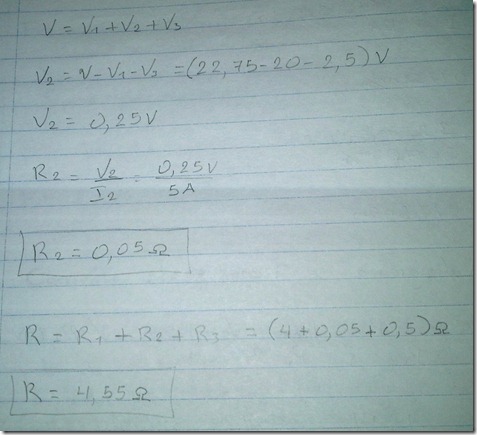 V = V1 + V2 + V3
V2 = V - V1 - V3 = (22,75 - 20 - 2,5) V
V2 = 0,25V
R2 = V2/I2 = 0,25V/5A
R2 = 0,05 Ω
R = R1 + R2 + R3 = (4 + 0,05 + 0,5) Ω
R = 4,55 Ω